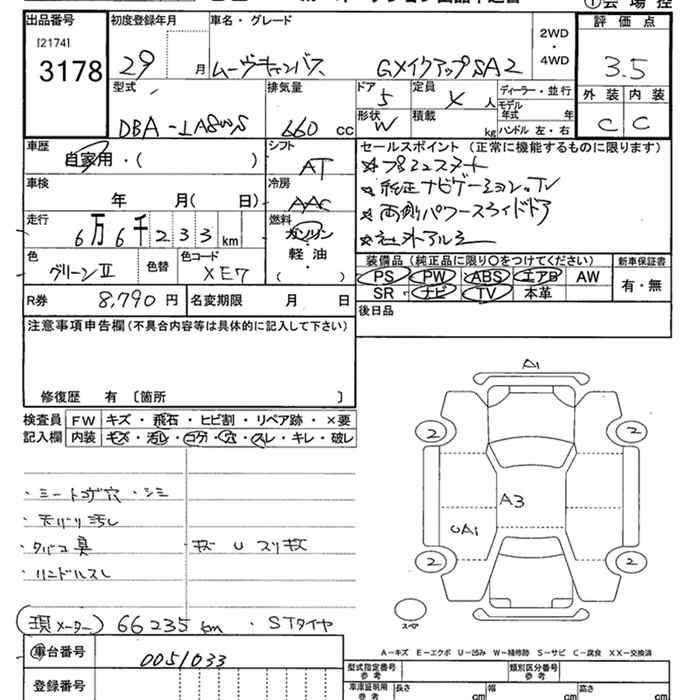 出品番号
[2174]
3178
初度登録年月
29 月
車名・グレード
ムーヴキャンバス GメイクアップSA2
2WD
・
4WD
評価点
3.5
外装 内装
C C
型式
DBA-LA800S
排気量
660 cc
ドア
5
定員
4 人
形状
W
積載
kg
ディーラー・並行
モデル年式 年
ハンドル 左・右
車歴
自家用・( )
シフト
AT
車検
年 月( 日)
冷房
AAC
走行
6万6千233km
燃料
ガソリン
・
軽油
( )
色
グリーンⅡ
色替
色コード
XE7
R券 8,790円
名変期限 月 日
セールスポイント (正常に機能するものに限ります)
★プッシュスタート
★純正ナビゲーション、TV
★両側パワースライドドア
★社外アルミ
装備品 (純正品に限り〇をつけてください) 新車保証書
PS PW ABS エアB AW
SR ナビ TV 本革
有・無
後日品
注意事項申告欄 (不具合内容等は具体的に記入して下さい)
修復歴 有 〔箇所 〕
検査員 FW キズ・飛石・ヒビ割・リペア跡・×要
記入欄 内装 キズ・汚レ・コゲ・穴・スレ・キレ・破レ
・シートコゲ穴・シミ
・天バリ汚レ
・タバコ臭
・ハンドルスレ
・キズ U スリキズ
(現メーター) 66235km ・STタイヤ
車台番号 0051033
登録番号
A1
2 2
A3
UA1
2 2
スペア
A―キズ E―エクボ U―凹み W―補修跡 S―サビ C―腐食 XX―交換済
型式指定番号 参考
類別区分番号 参考
車庫証明用 参考 長さ cm 幅 cm 高さ cm